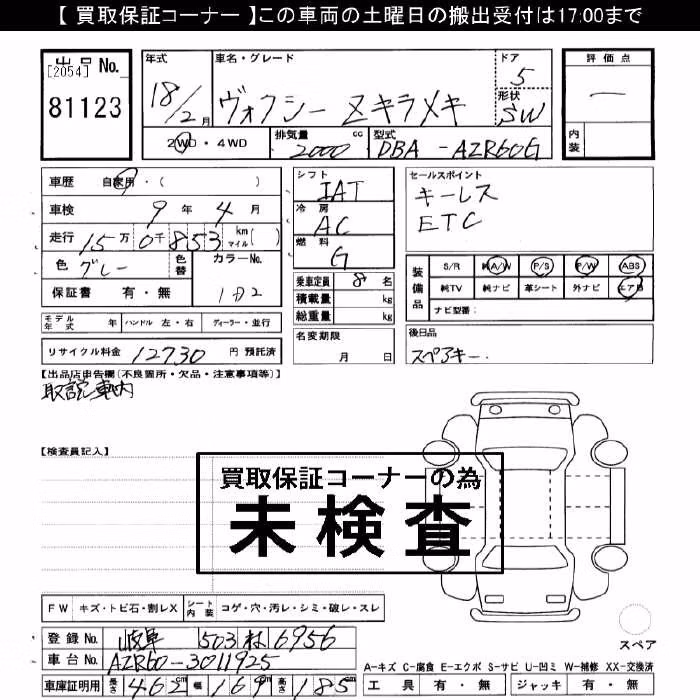 【 買取保証コーナー 】この車両の土曜日の搬出受付は17:00まで
出品 No.
[2054]
81123
年式
18/2月
車名・グレード
ヴォクシー Zキラメキ
ドア
5
形状
SW
評価点
―
内装
2WD・4WD
排気量
2000 cc
型式
DBA-AZR60G
車歴 自家用・( )
車検 9年 4月
走行 15万 0千 853 km マイル( )
色 グレー
色替
カラーNo.
1D2
保証書 有・無
シフト
IAT
冷房
AC
燃料
G
乗車定員 8名
積載量 kg
総重量 kg
セールスポイント
キーレス
ETC
装備品
S/R 純A/W P/S P/W ABS
純TV 純ナビ 革シート 外ナビ エアB
ナビ型番:
モデル年式 年 ハンドル 左・右 ディーラー・並行
リサイクル料金 12730 円 預託済
名変期限
月 日
後日品
スペアキー.
【出品店申告欄(不良箇所・欠品・注意事項等)】
取説車内
【検査員記入】
買取保証コーナーの為
未検査
FW キズ・トビ石・割レX シート内装 コゲ・穴・汚レ・シミ・破レ・スレ
登録 No. 岐阜 503 6956
車台 No. AZR60-3011925
車庫証明用 長さ 462cm 幅 169cm 高さ 185cm
スペア
A-キズ C-腐食 E-エクボ S-サビ U-凹ミ W-補修 XX-交換済
工具 有・無 ジャッキ 有・無